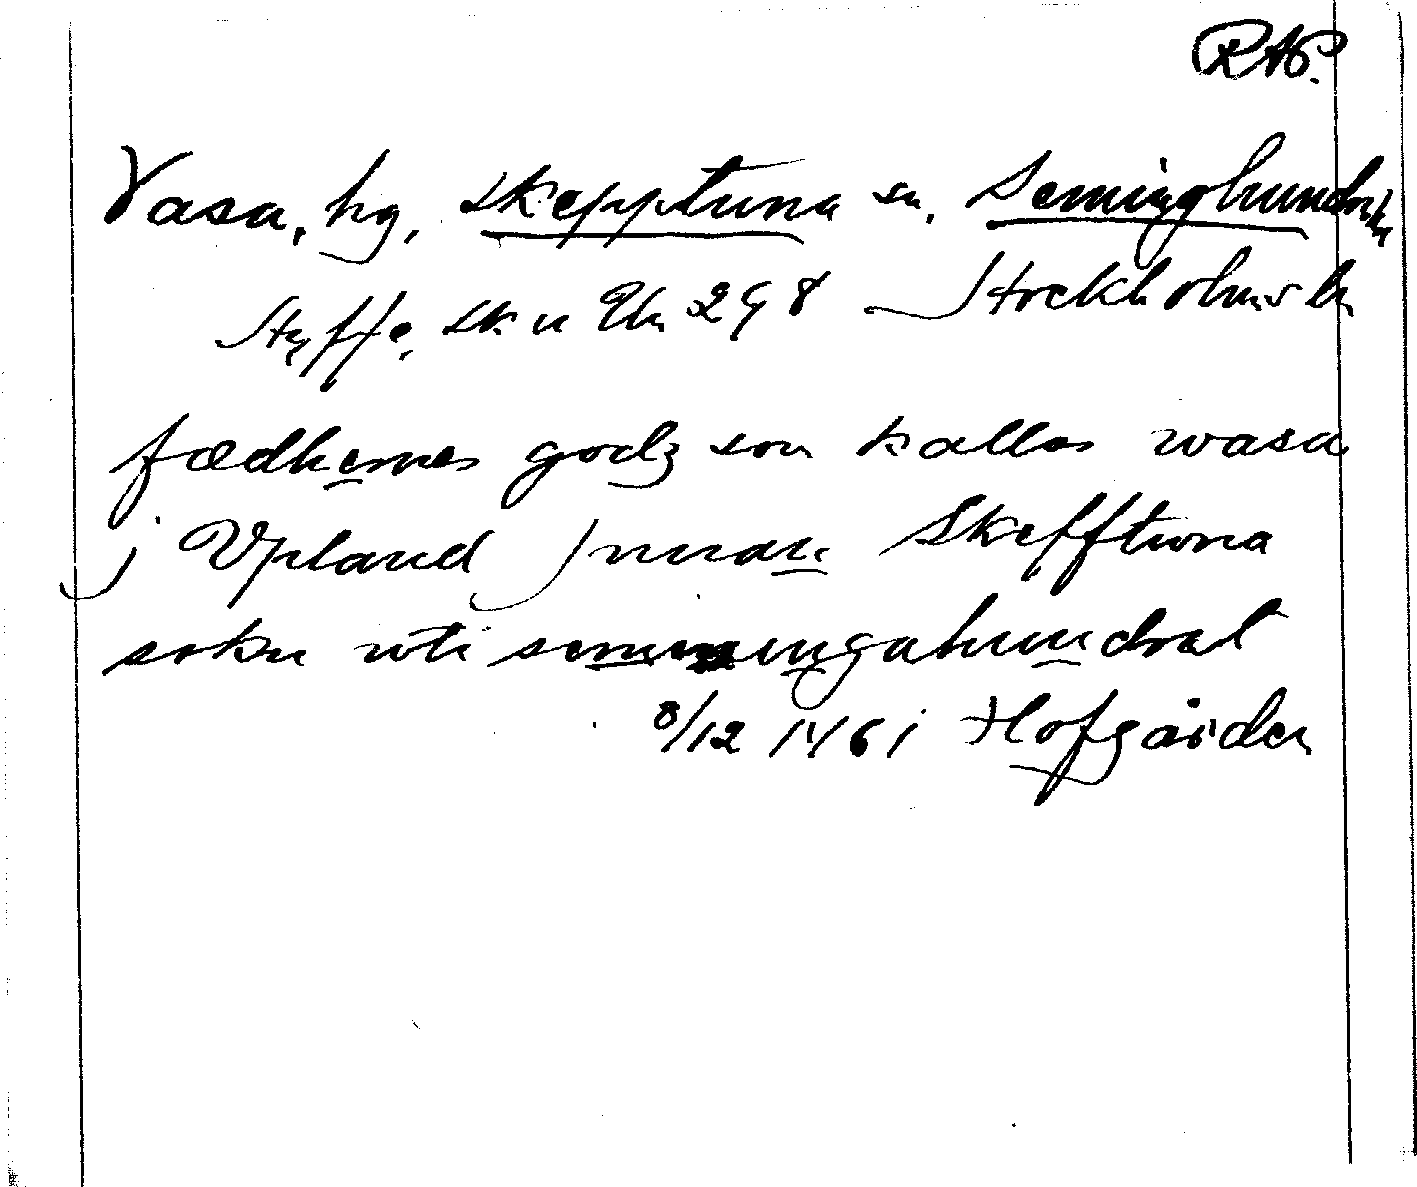 RAP.
Vasa, hg, Skepptuna sn, Seminghundra h
Styffe, Sk u Un 298 Stockholms ln
fædhernes godz som kallas wasa
j Vpland Jnnan Skefftuna
sokn vti semmingahundrat
8/12 1461 Hofgården